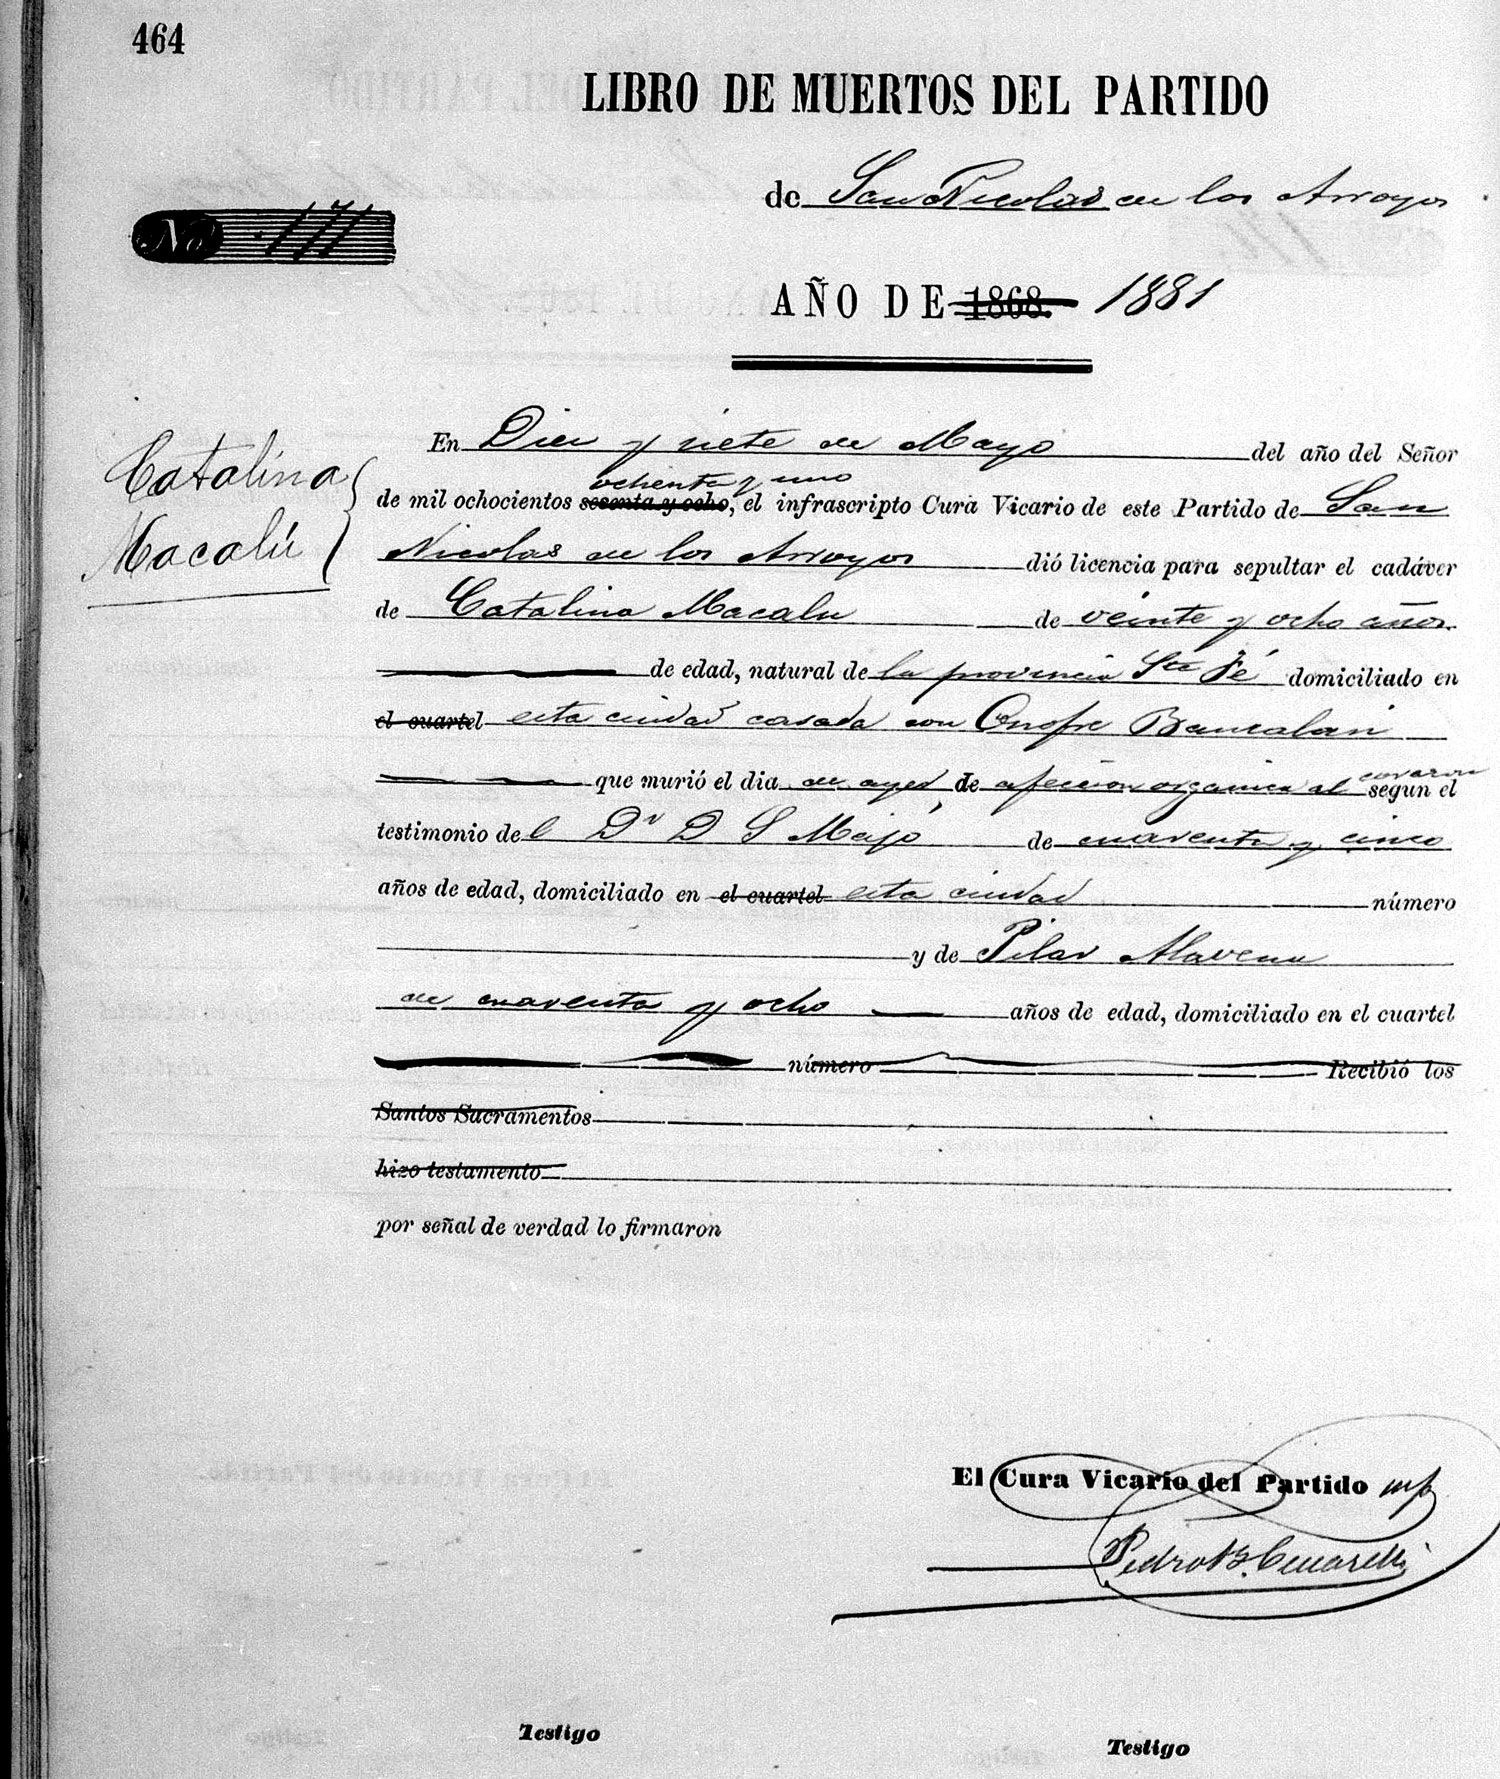 464
LIBRO DE MUERTOS DEL PARTIDO
de San Nicolas de los Arroyos
No 171
AÑO DE 1868. 1881
Catalina
Macalú
En Diez y siete de Mayo del año del Señor
ochenta y uno
de mil ochocientos sesenta y ocho, el infrascripto Cura Vicario de este Partido de San
Nicolas de los Arroyos dió licencia para sepultar el cadáver
de Catalina Macalu de veinte y ocho años
de edad, natural de la provincia Sta Fé domiciliado en
el cuartel esta ciudad casada con Onofre
que murió el dia de ayer, de afeccion organica al corazon segun el
testimonio del Dr D S de cuarenta y cinco
años de edad, domiciliado en el cuartel esta ciudad número
y de Pilar
de cuarenta y ocho años de edad, domiciliado en el cuartel
número Recibió los
Santos Sacramentos
hizo testamento
por señal de verdad lo firmaron
El Cura Vicario del Partido
Pedro B.
Testigo
Testigo